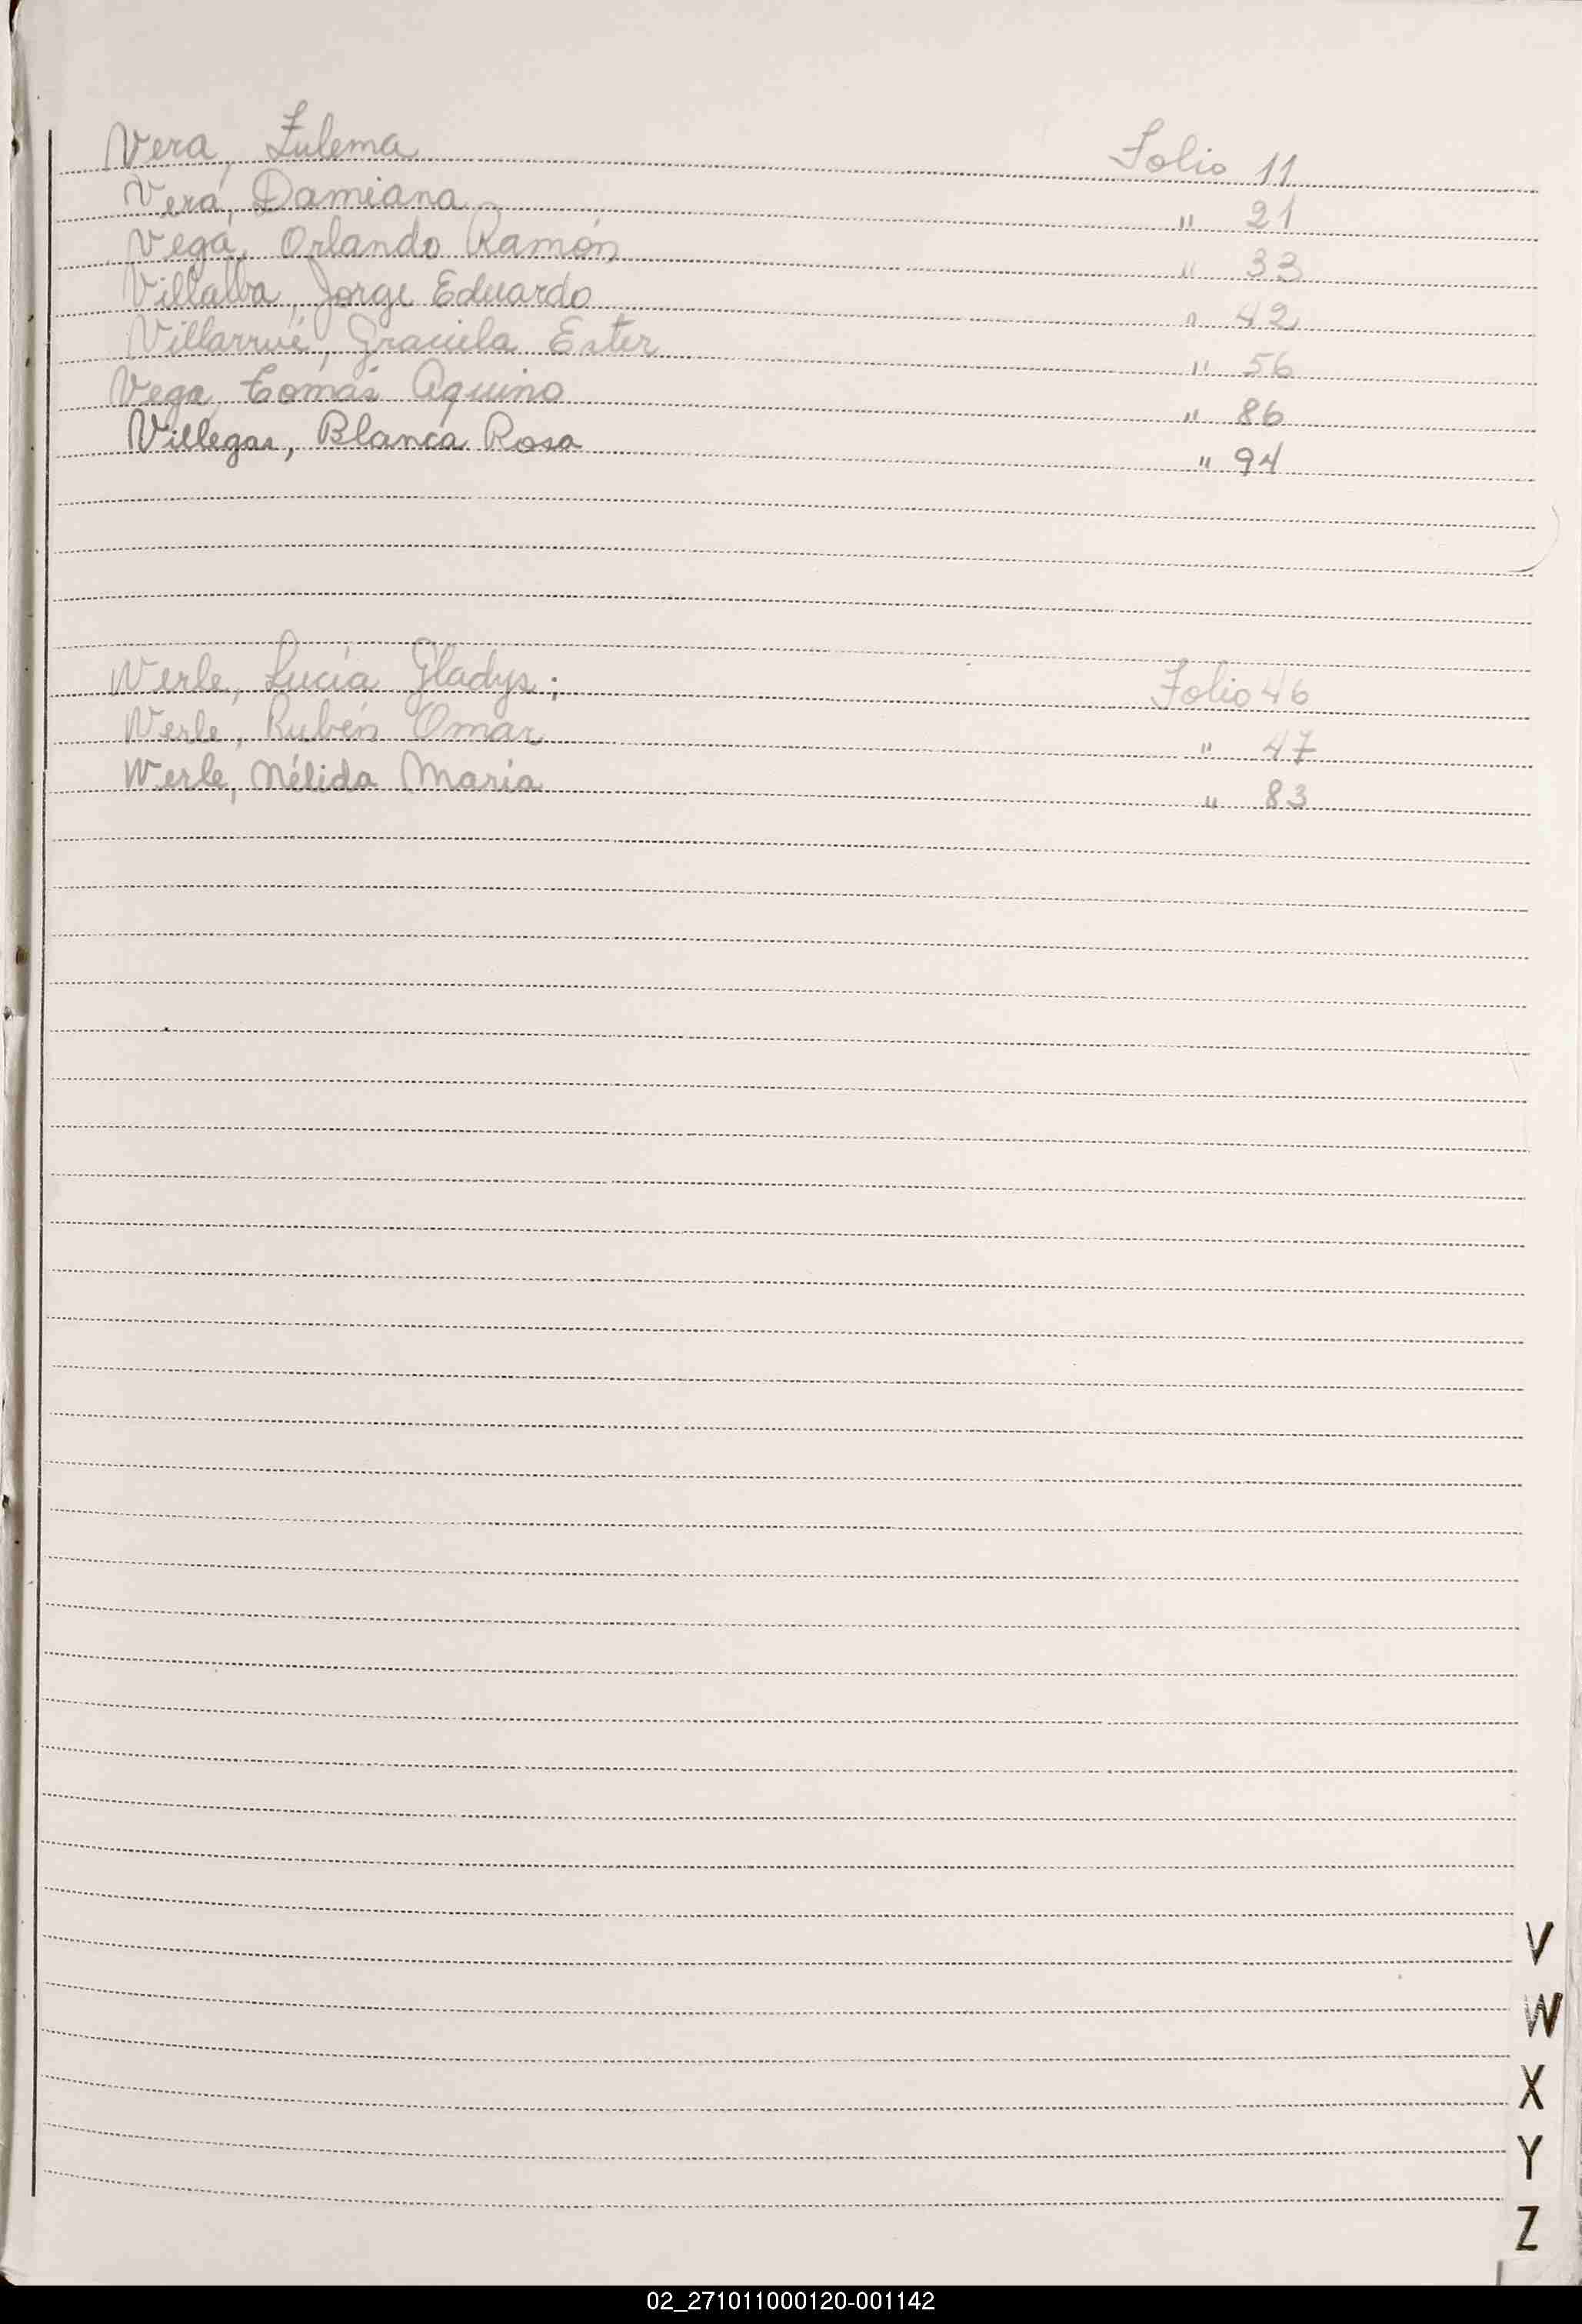 Vera, Zulema Folio 11
Vera, Damiana " 21
Vega, Orlando Ramón " 33
Villalba, Jorge Eduardo " 42
Villarrué, Graciela Ester " 56
Vega, Tomás Aquino " 86
Villegas, Blanca Rosa " 94
Werle, Lucía Gladys; Folio 46
Werle, Rubén Omar " 47
Werle, Nélida María " 83
V
W
X
Y
Z
02_271011000120-001142